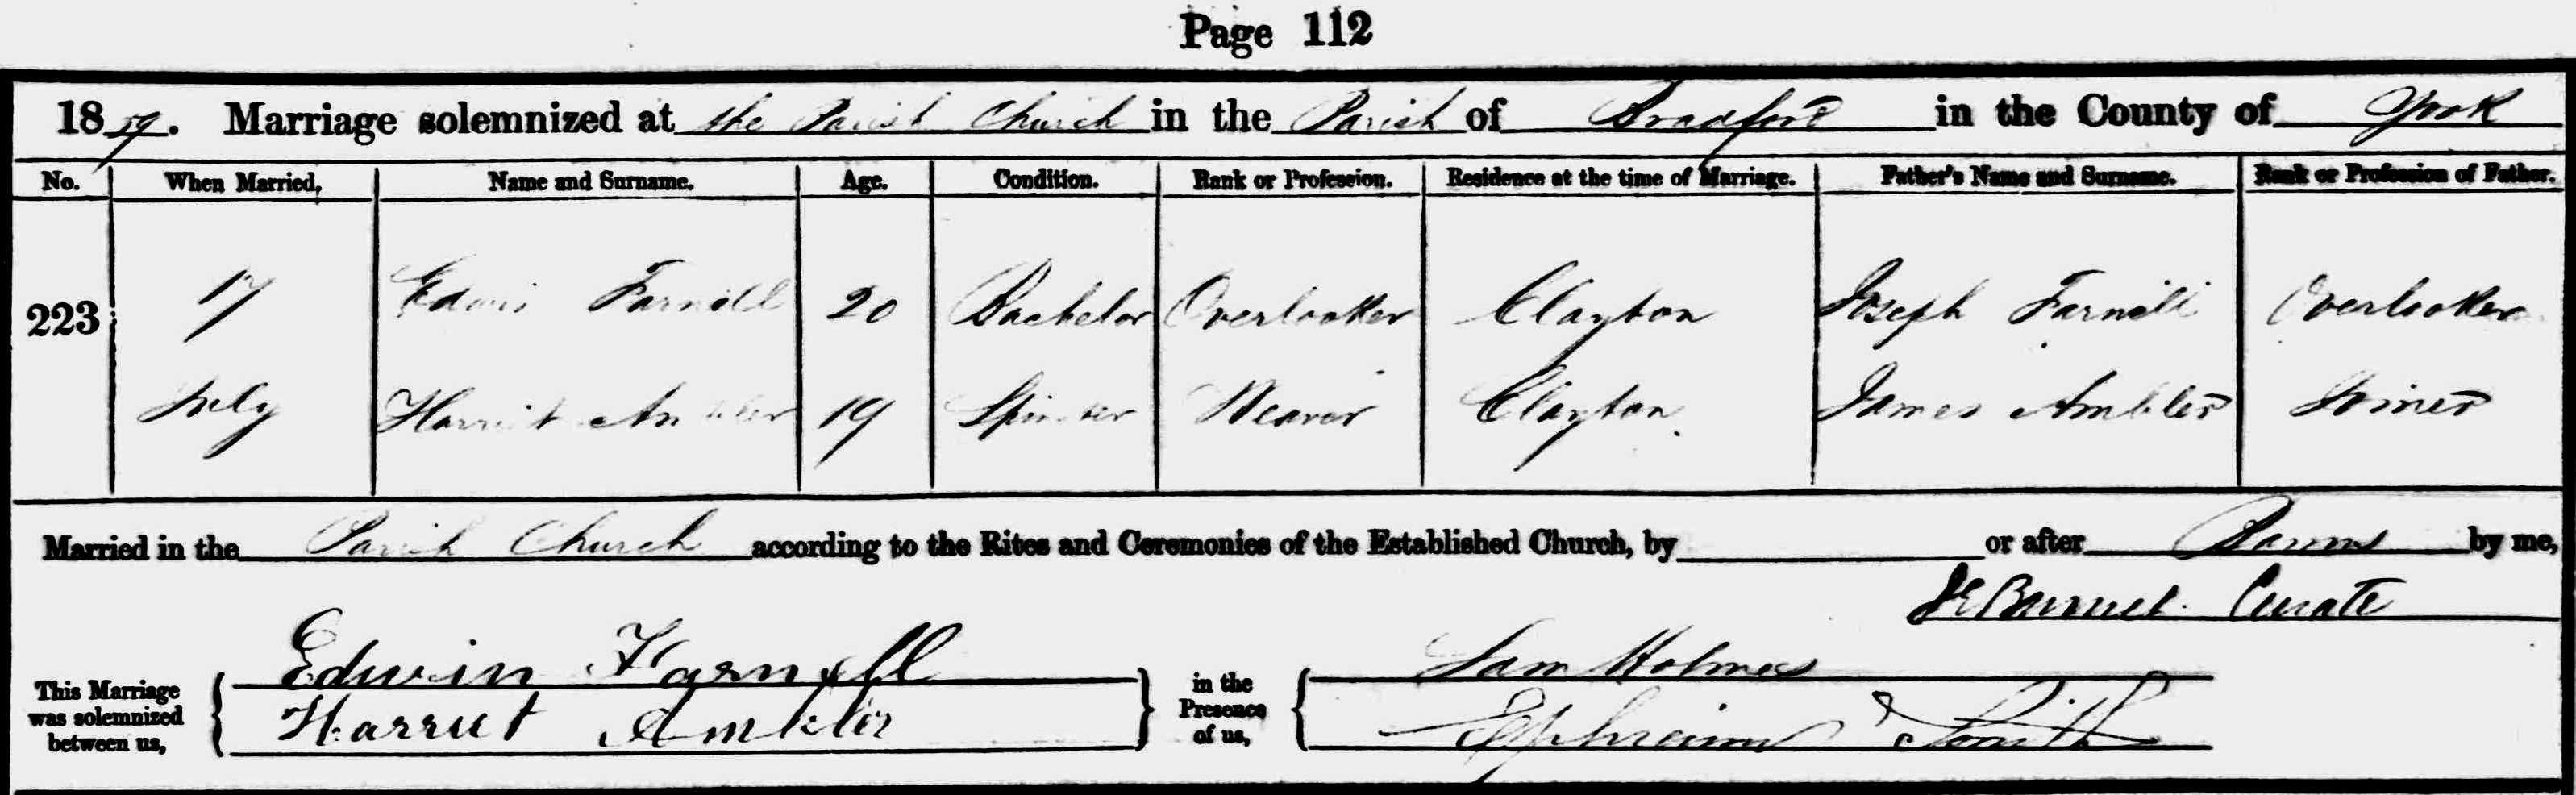 Page 112
1859. Marriage solemnized at the Parish Church in the Parish of Bradford in the County of York
No. When Married, Name and Surname. Age. Condition. Rank or Profession. Residence at the time of Marriage. Father's Name and Surname. Rank or Profession of Father.
223 17 Edwin Farnell 20 Bachelor Overlooker Clayton Joseph Farnell Overlooker
July Harriet Ambler 19 Spinster Weaver Clayton James Ambler Joiner
Married in the Parish Church according to the Rites and Ceremonies of the Established Church, by or after Banns by me,
Burnet. Curate
This Marriage was solemnized between us, Edwin Farnell in the Presence of us, Sam Holmes
Harriet Ambler Ephraim Smith